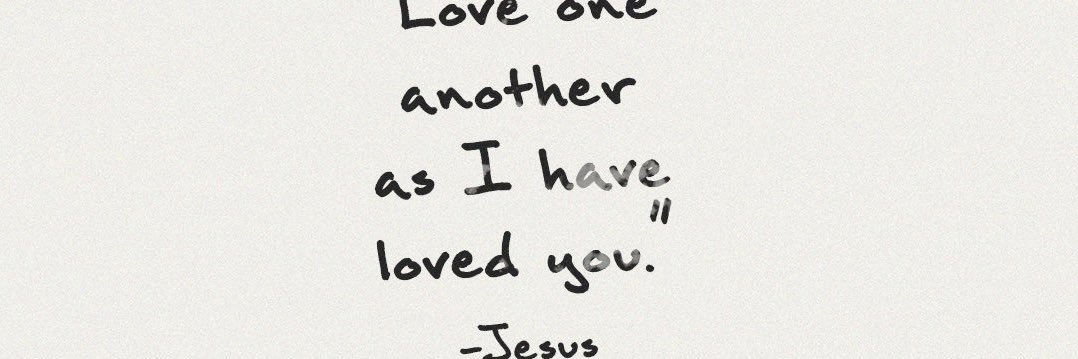 Love one
another
as I have
loved you."
-Jesus